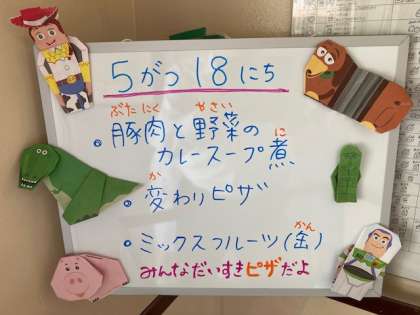 5がつ18にち
ぶたにく やさい
・豚肉と野菜の
に
カレースープ煮
か
・変わりピザ
かん
・ミックスフルーツ(缶)
みんなだいすきピザだよ